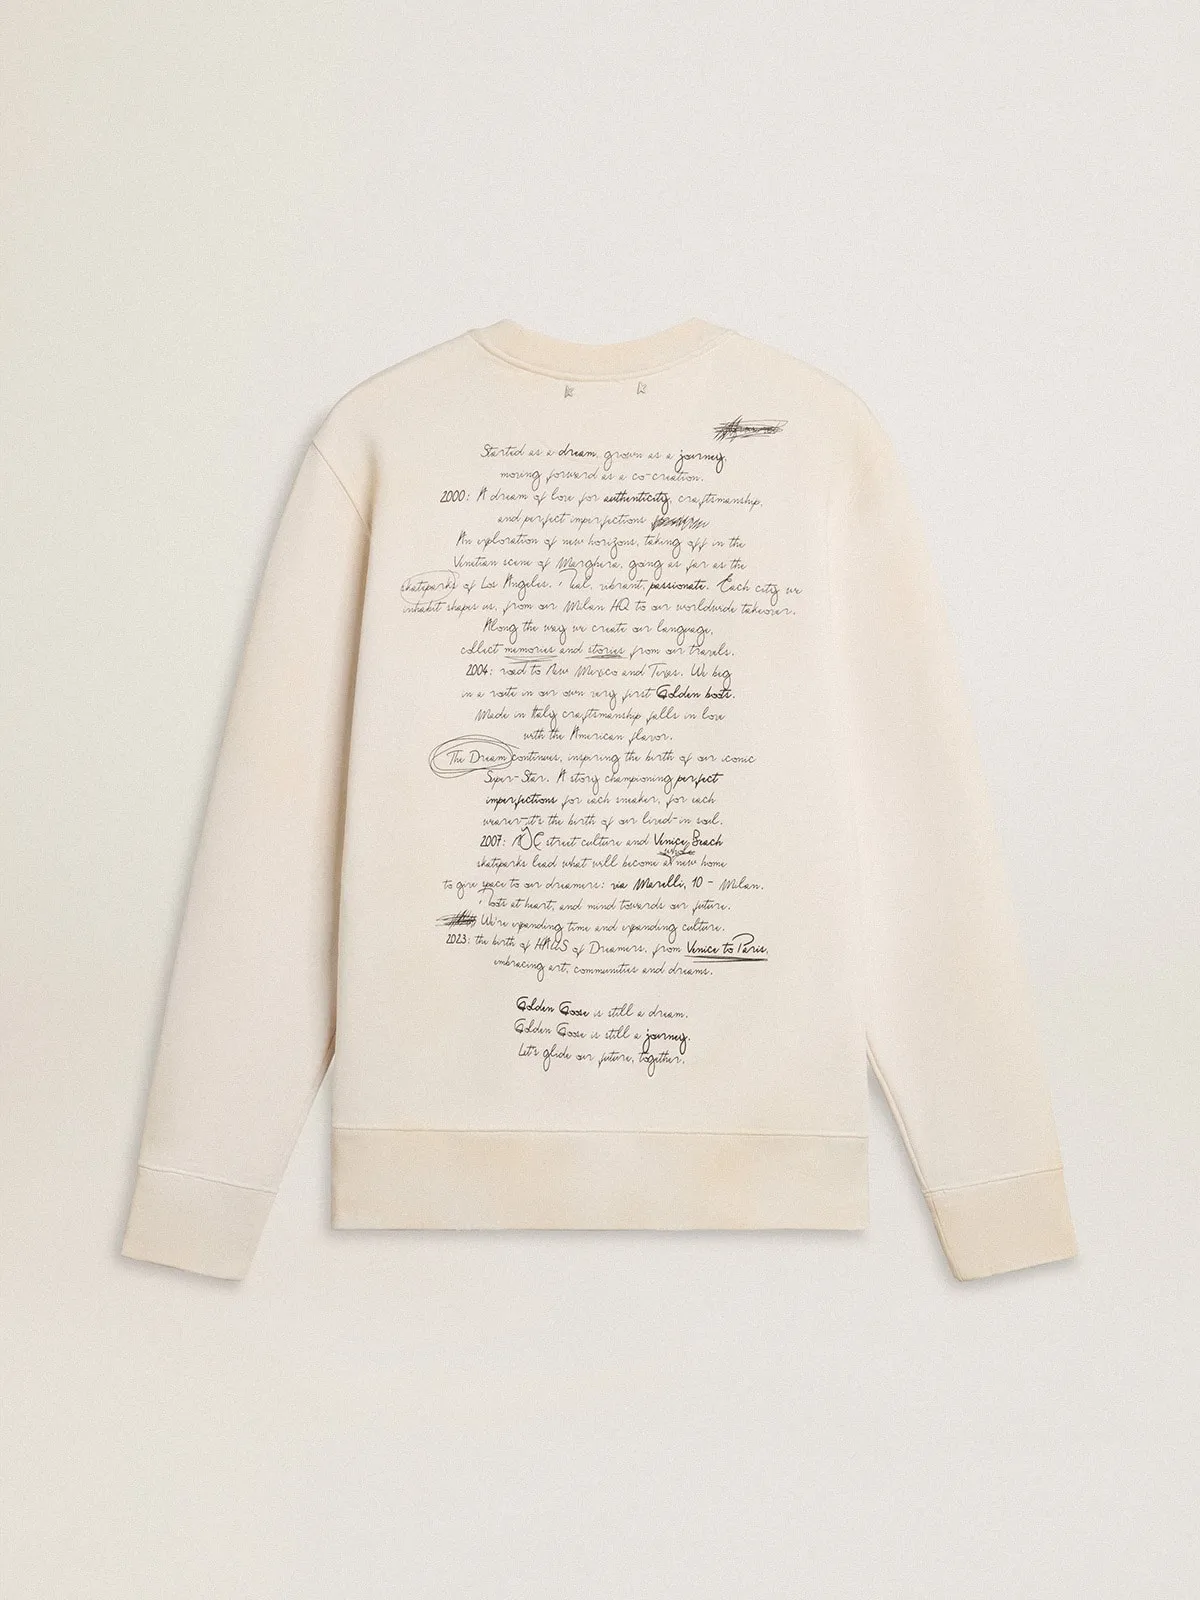 Started as a dream, grown as a journey,
moving forward as a co-creation.
2000: A dream of love for authenticity, craftsmanship,
and perfect imperfections
An exploration of new horizons, taking off in the
Venetian scene of Marghera, going as far as the
skateparks of Los Angeles. Real, vibrant, passionate. Each city we
inhabit shapes us, from our Milan HQ to our worldwide takeover.
Along the way we create our language,
collect memories and stories from our travels.
2004: road to New Mexico and Texas. We big
in a route in our own very first Golden boots.
Made in Italy craftsmanship falls in love
with the American flavor.
The Dream continues, inspiring the birth of our iconic
Super-Star. A story championing perfect
imperfections for each sneaker, for each
wearer-it's the birth of our lived-in soul.
2007: NYC street culture and Venice Beach
skateparks lead what will become a whole new home
to give space to our dreamers: via Marelli, 10 - Milan.
Roots at heart, and mind towards our future.
We're expanding time and expanding culture.
2023: the birth of HAUS of Dreamers, from Venice to Paris,
embracing art, communities and dreams.
Golden Goose is still a dream.
Golden Goose is still a journey.
Let's glide our future, together.